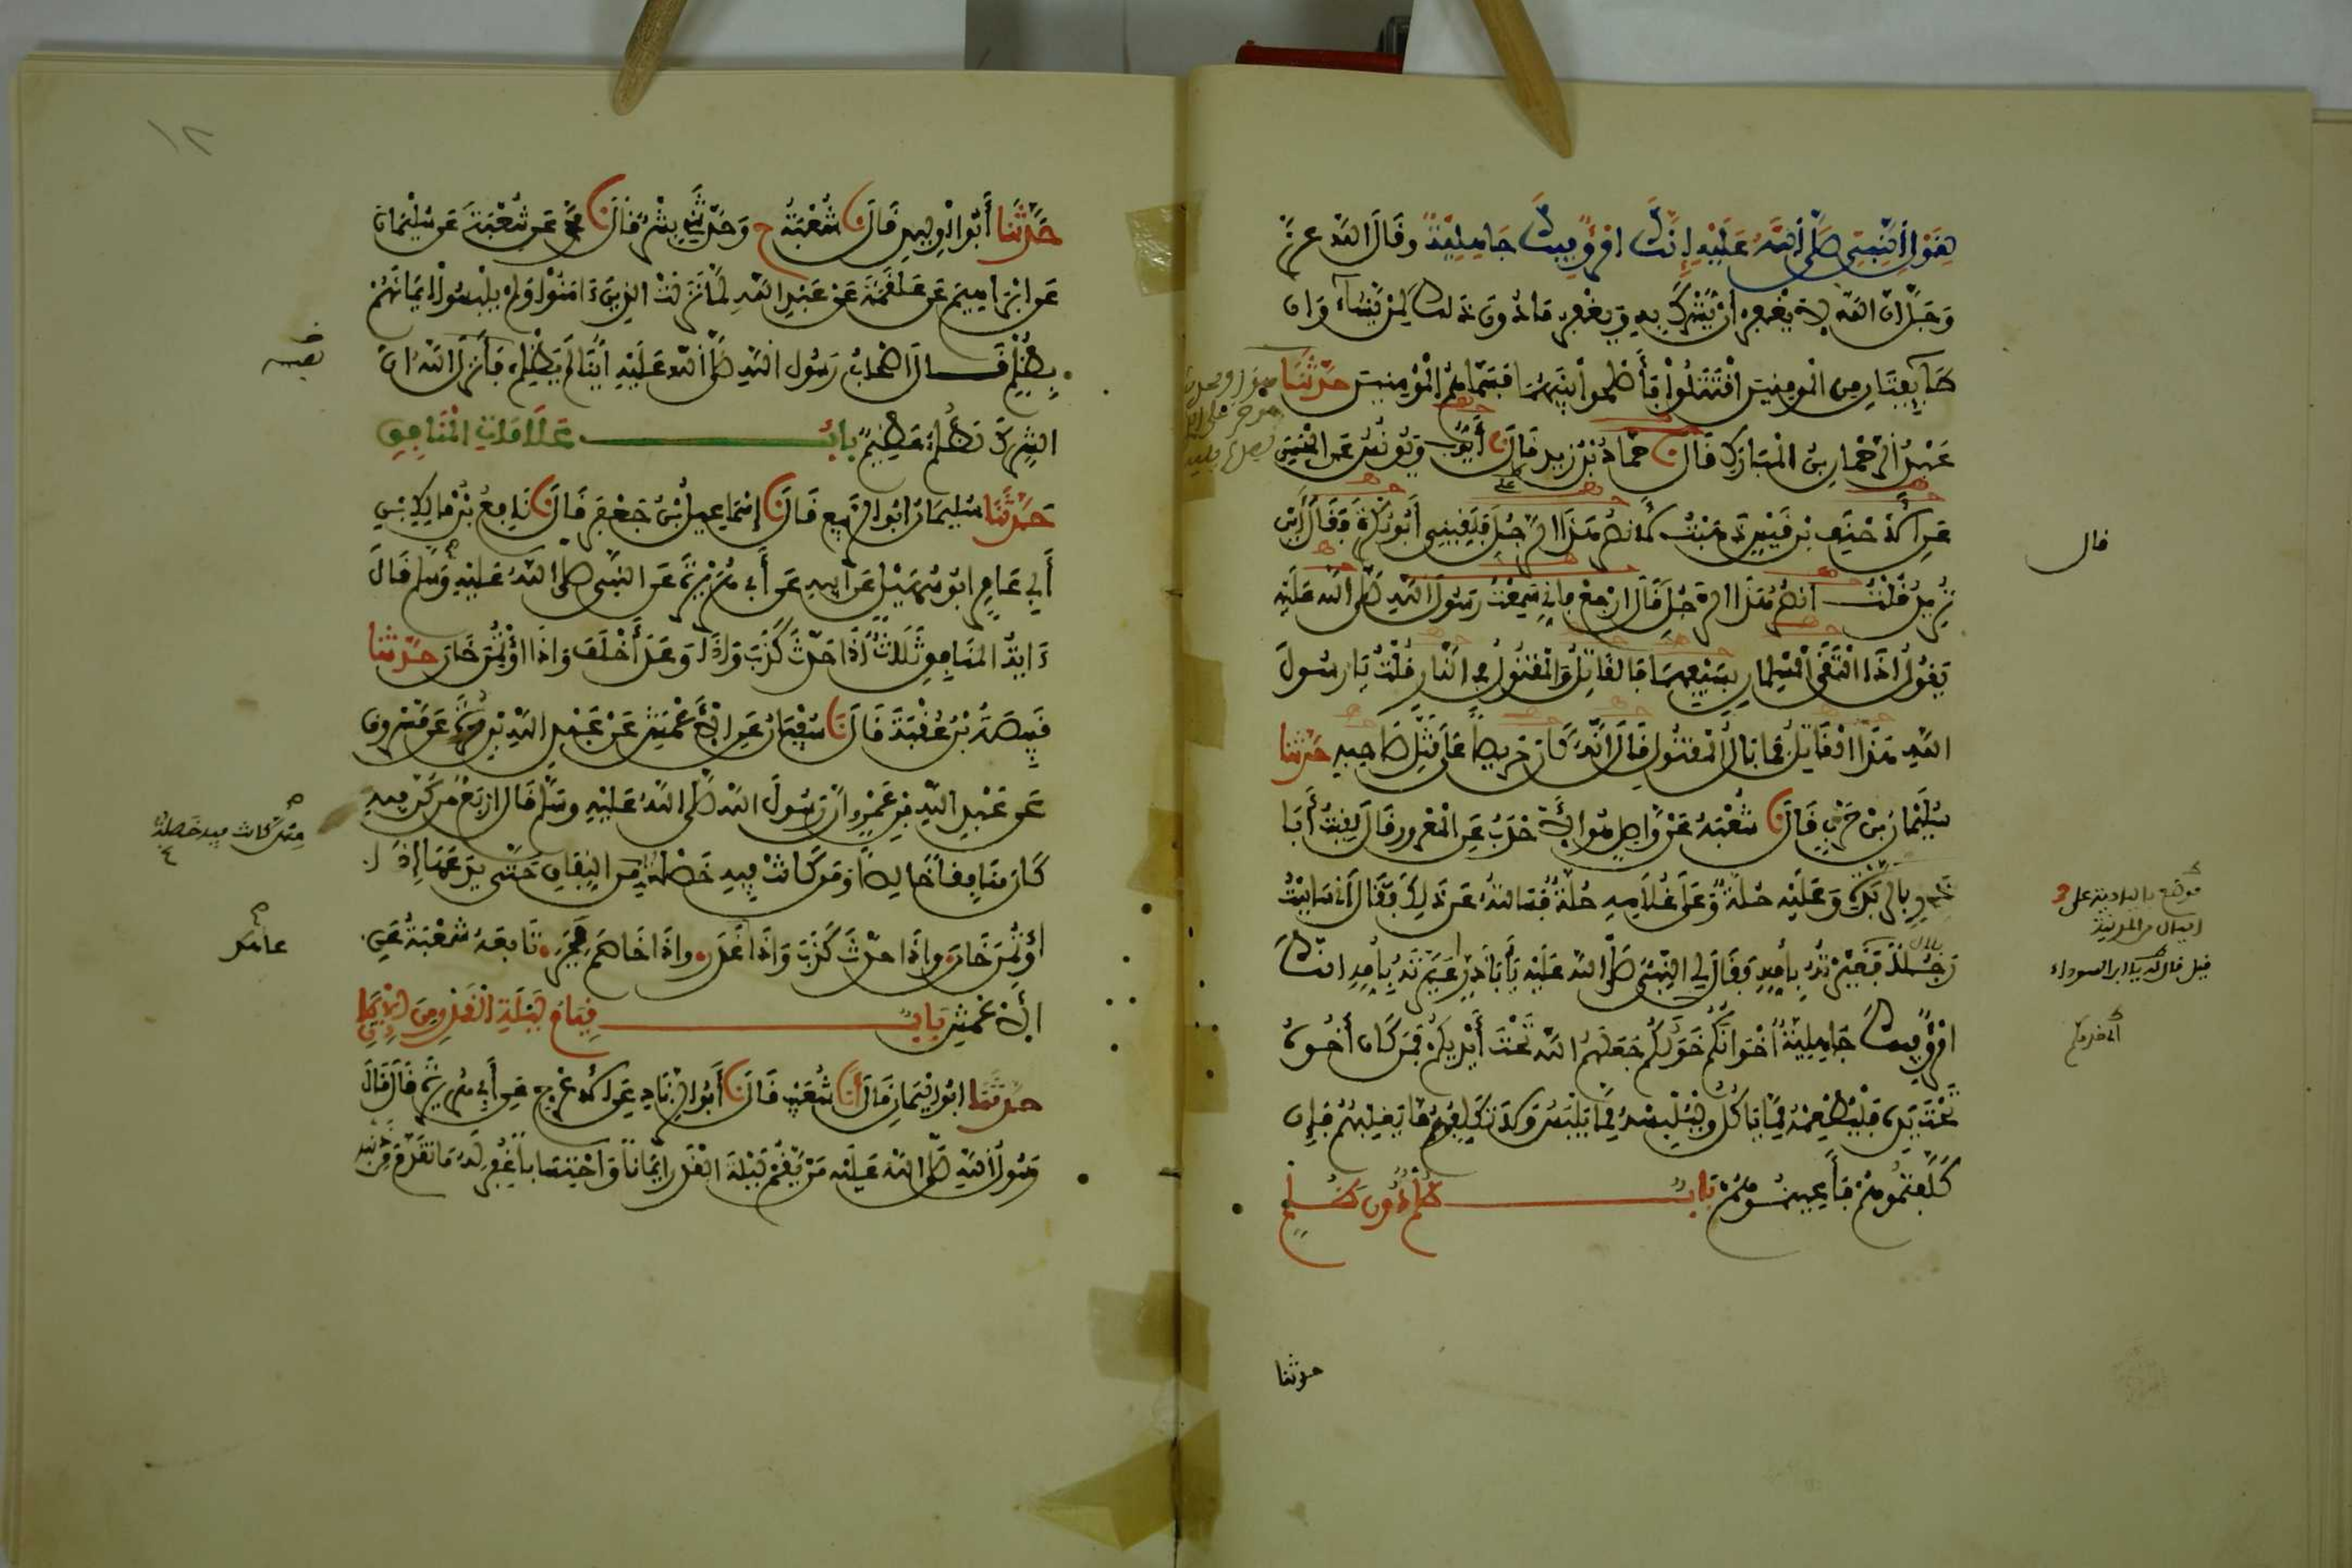 لقول النبي صلى الله عليه إنك امرؤ فيك جاهلية وقال الله عز
وجل إن الله لا يغفر أن يشرك به ويغفر ما دون ذلك لمن يشاء وإن
طايفتان من المومنين اقتتلوا فأصلحوا بينهما فسماهم المؤمنين حدثنا
عبد الرحمان بن المبارك قال نا حماد بن زيد قال نا أيوب ويونس عن الحسن
عن الأحنف بن قيس ذهبت لأنصر هذا الرجل فلقيني أبو بكرة فقال أين
تريد قلت أنصر هذا الرجل قال ارجع فإني سمعت رسول الله صلى الله عليه
يقول إذا التقى المسلمان بسيفيهما فالقاتل والمقتول في النار فقلت يا رسول
الله هذا القاتل فما بال المقتول قال إنه كان حريصا على قتل صاحبه حدثنا
سليمان بن حرب قال نا شعبة عن واصل هو الأحدب عن المعرور قال لقيت أبا
ذر بالربذة وعليه حلة وعلى غلامه حلة فسالته عن ذلك فقال إني ساببت
رجلا فعيرته بأمه فقال لي النبي صلى الله عليه يا أبا ذر أعيرته بأمه إنك
امرؤ فيك جاهلية إخوانكم خولكم جعلهم الله تحت أيديكم فمن كان أخوه
تحت يده فليطعمه مما ياكل وليلبسه مما يلبس ولا تكلفوهم ما يغلبهم فإن
كلفتموهم فأعينوهم باب ظلم دون ظلم
قال
قيل قال له يا ابن السوداء
حدثنا
١٢
حدثنا أبو الوليد قال نا شعبة ح وحدثني بشر قال نا محمد عن شعبة عن سليمان
عن ابراهيم عن علقمة عن عبد الله لما نزلت الذين ءامنوا ولم يلبسوا إيمانهم
بظلم قال أصحاب رسول الله صلى الله عليه أينا لم يظلم فأنزل الله إن
الشرك لظلم عظيم باب علامات المنافق
حدثنا سليمان ابو الربيع قال نا إسماعيل بن جعفر قال نا نافع بن مالك بن
أبي عامر ابو سهيل عن أبيه عن أبي هريرة عن النبي صلى الله عليه وسلم قال
ءاية المنافق ثلاث إذا حدث كذب وإذا وعد أخلف وإذا اؤتمن خان حدثنا
قبيصة بن عقبة قال نا سفيان عن الأعمش عن عبد الله بن مرة عن مسروق
عن عبد الله بن عمرو أن رسول الله صلى الله عليه وسلم قال أربع من كن فيه
كان منافقا خالصا ومن كانت فيه خصلة من النفاق حتى يدعها إذا
اؤتمن خان وإذا حدث كذب وإذا عاهد غدر وإذا خاصم فجر تابعه شعبة عن
الأعمش باب قيام ليلة القدر من الإيمان
حدثنا ابو اليمان قال أنا شعيب قال نا أبو الزناد عن الأعرج عن أبي هريرة قال قال
رسول الله صلى الله عليه من يقم ليلة القدر إيمانا واحتسابا غفر له ما تقدم من ذنبه
نفسه
منهن كانت فيه خصلة
عاهد